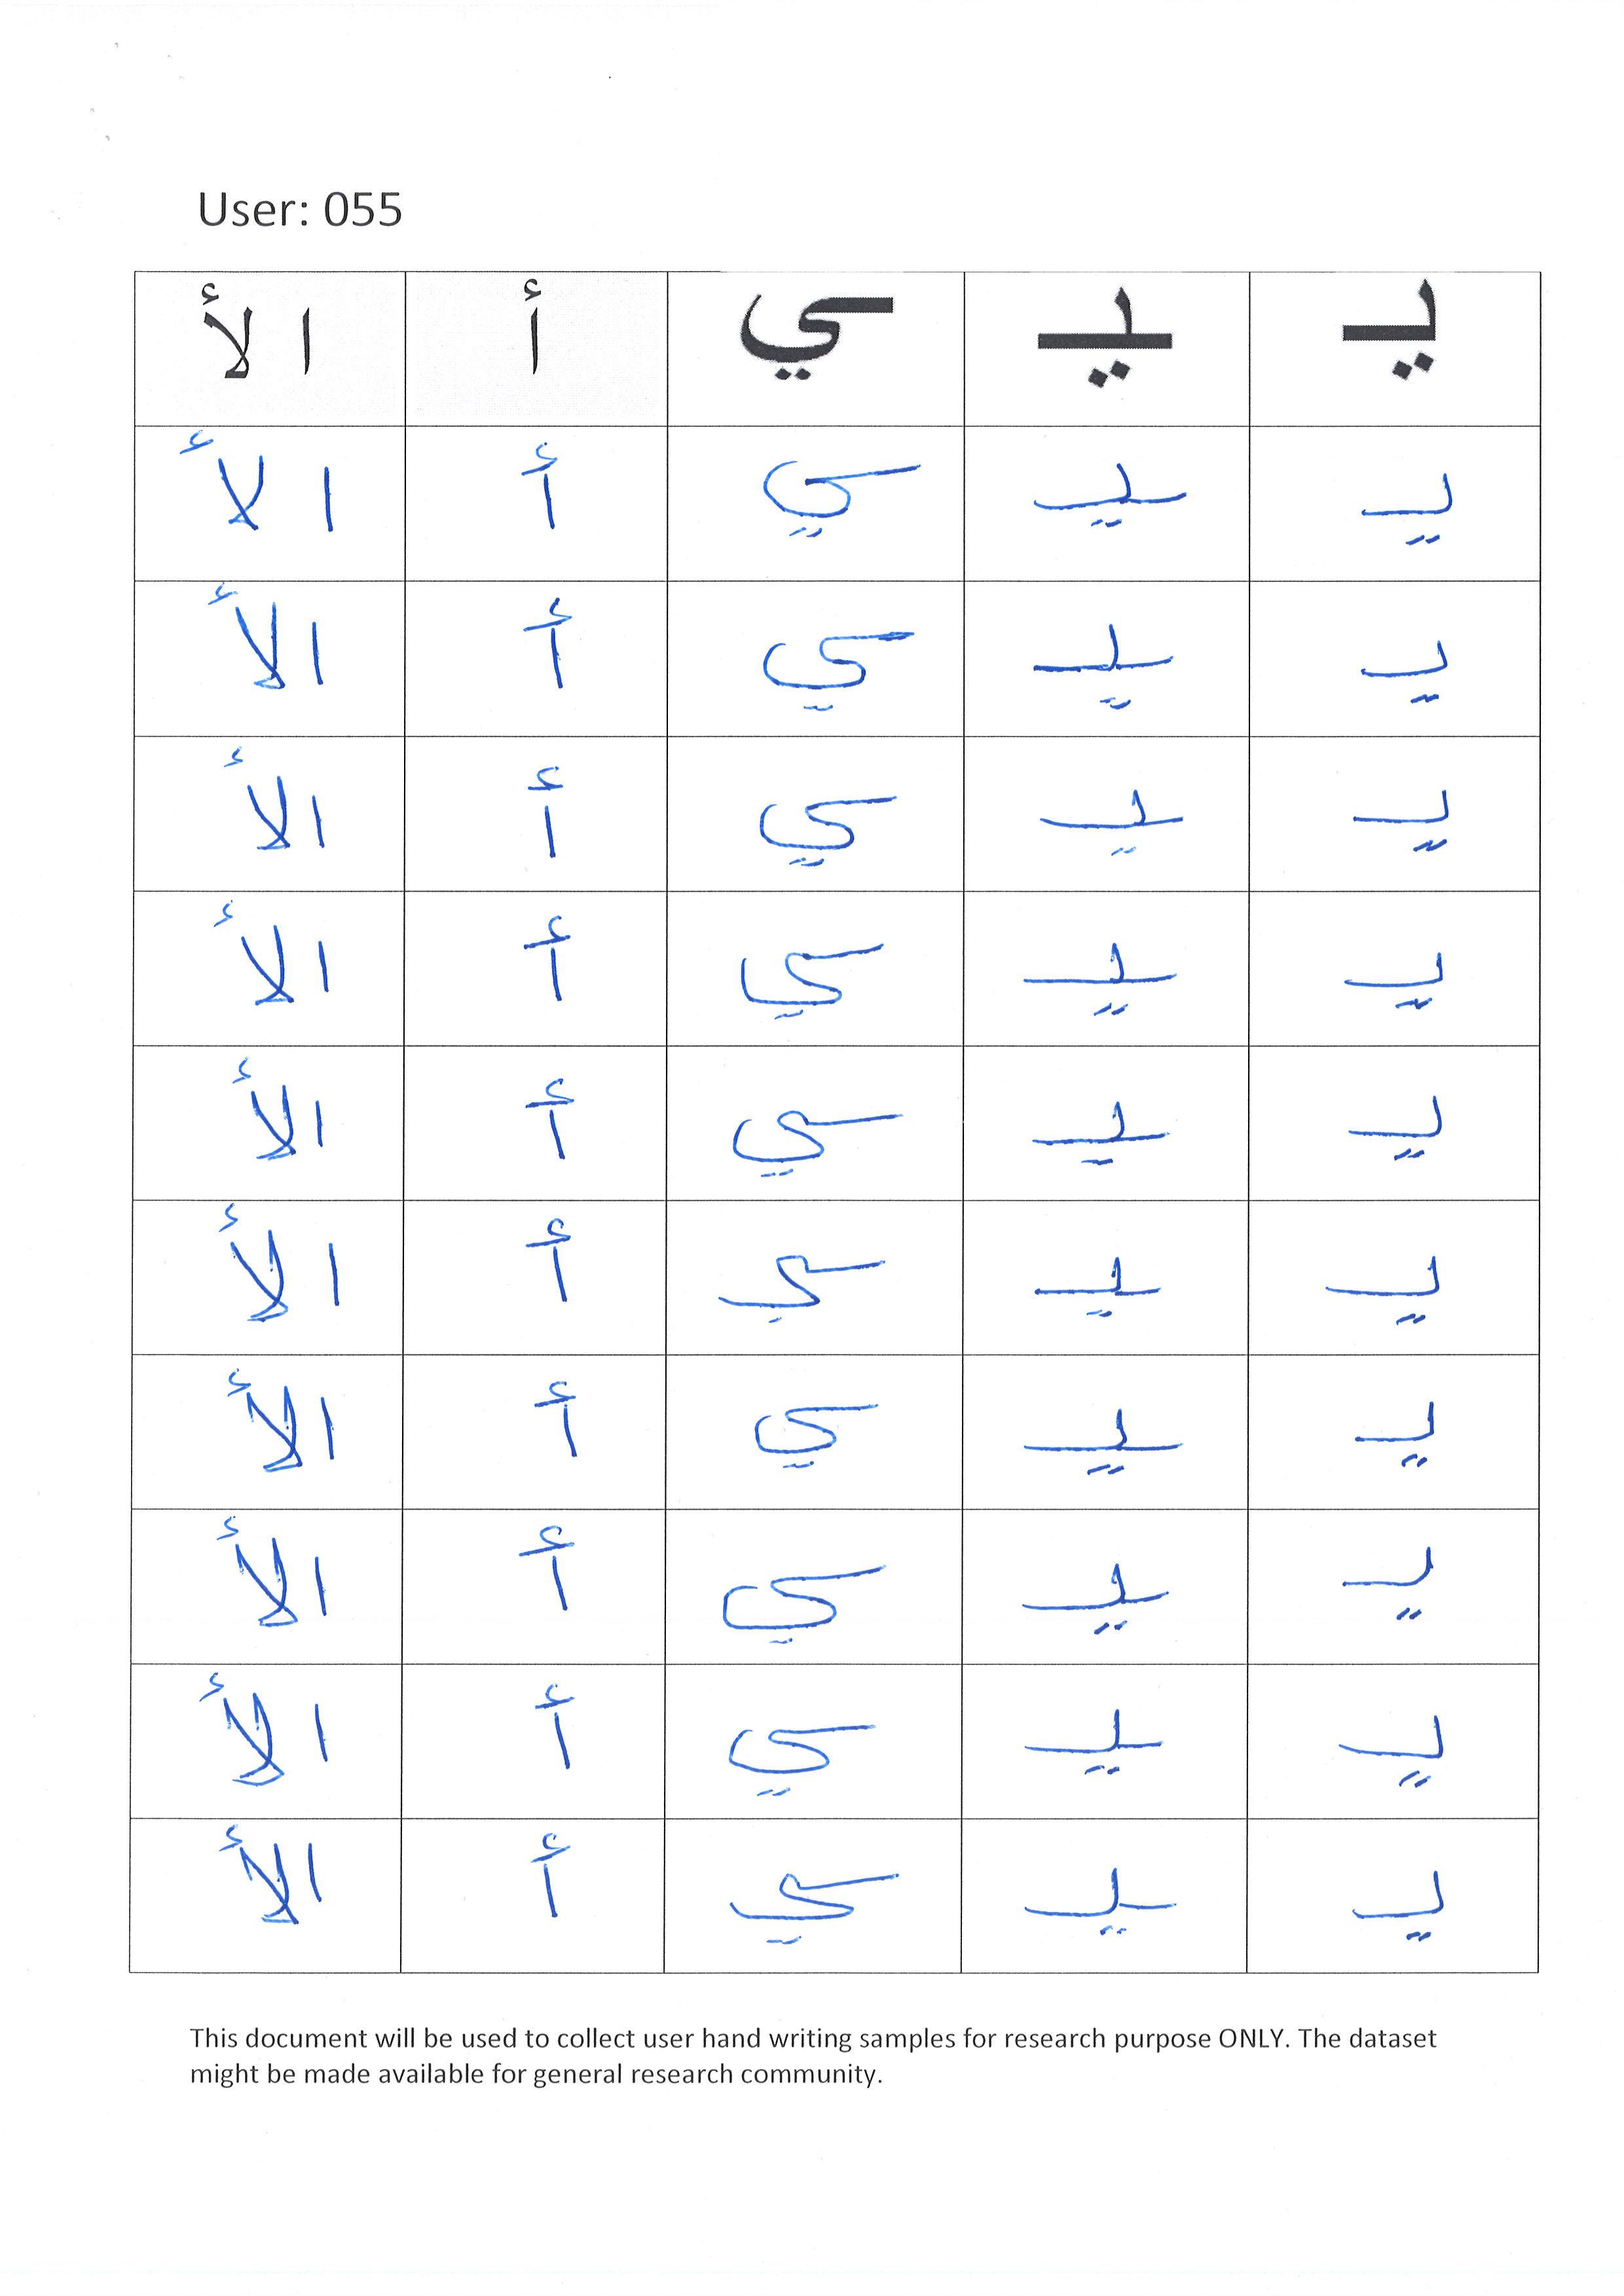 User: 055
يـ ـيـ ـي أ ا لأ
يـ ـيـ ـي أ ا لأ
يـ ـيـ ـي أ ا لأ
يـ ـيـ ـي أ ا لأ
يـ ـيـ ـي أ ا لأ
يـ ـيـ ـي أ ا لأ
يـ ـيـ ـي أ ا لأ
يـ ـيـ ـي أ ا لأ
يـ ـيـ ـي أ ا لأ
يـ ـيـ ـي أ ا لأ
يـ ـيـ ـي أ ا لأ
This document will be used to collect user hand writing samples for research purpose ONLY. The dataset
might be made available for general research community.